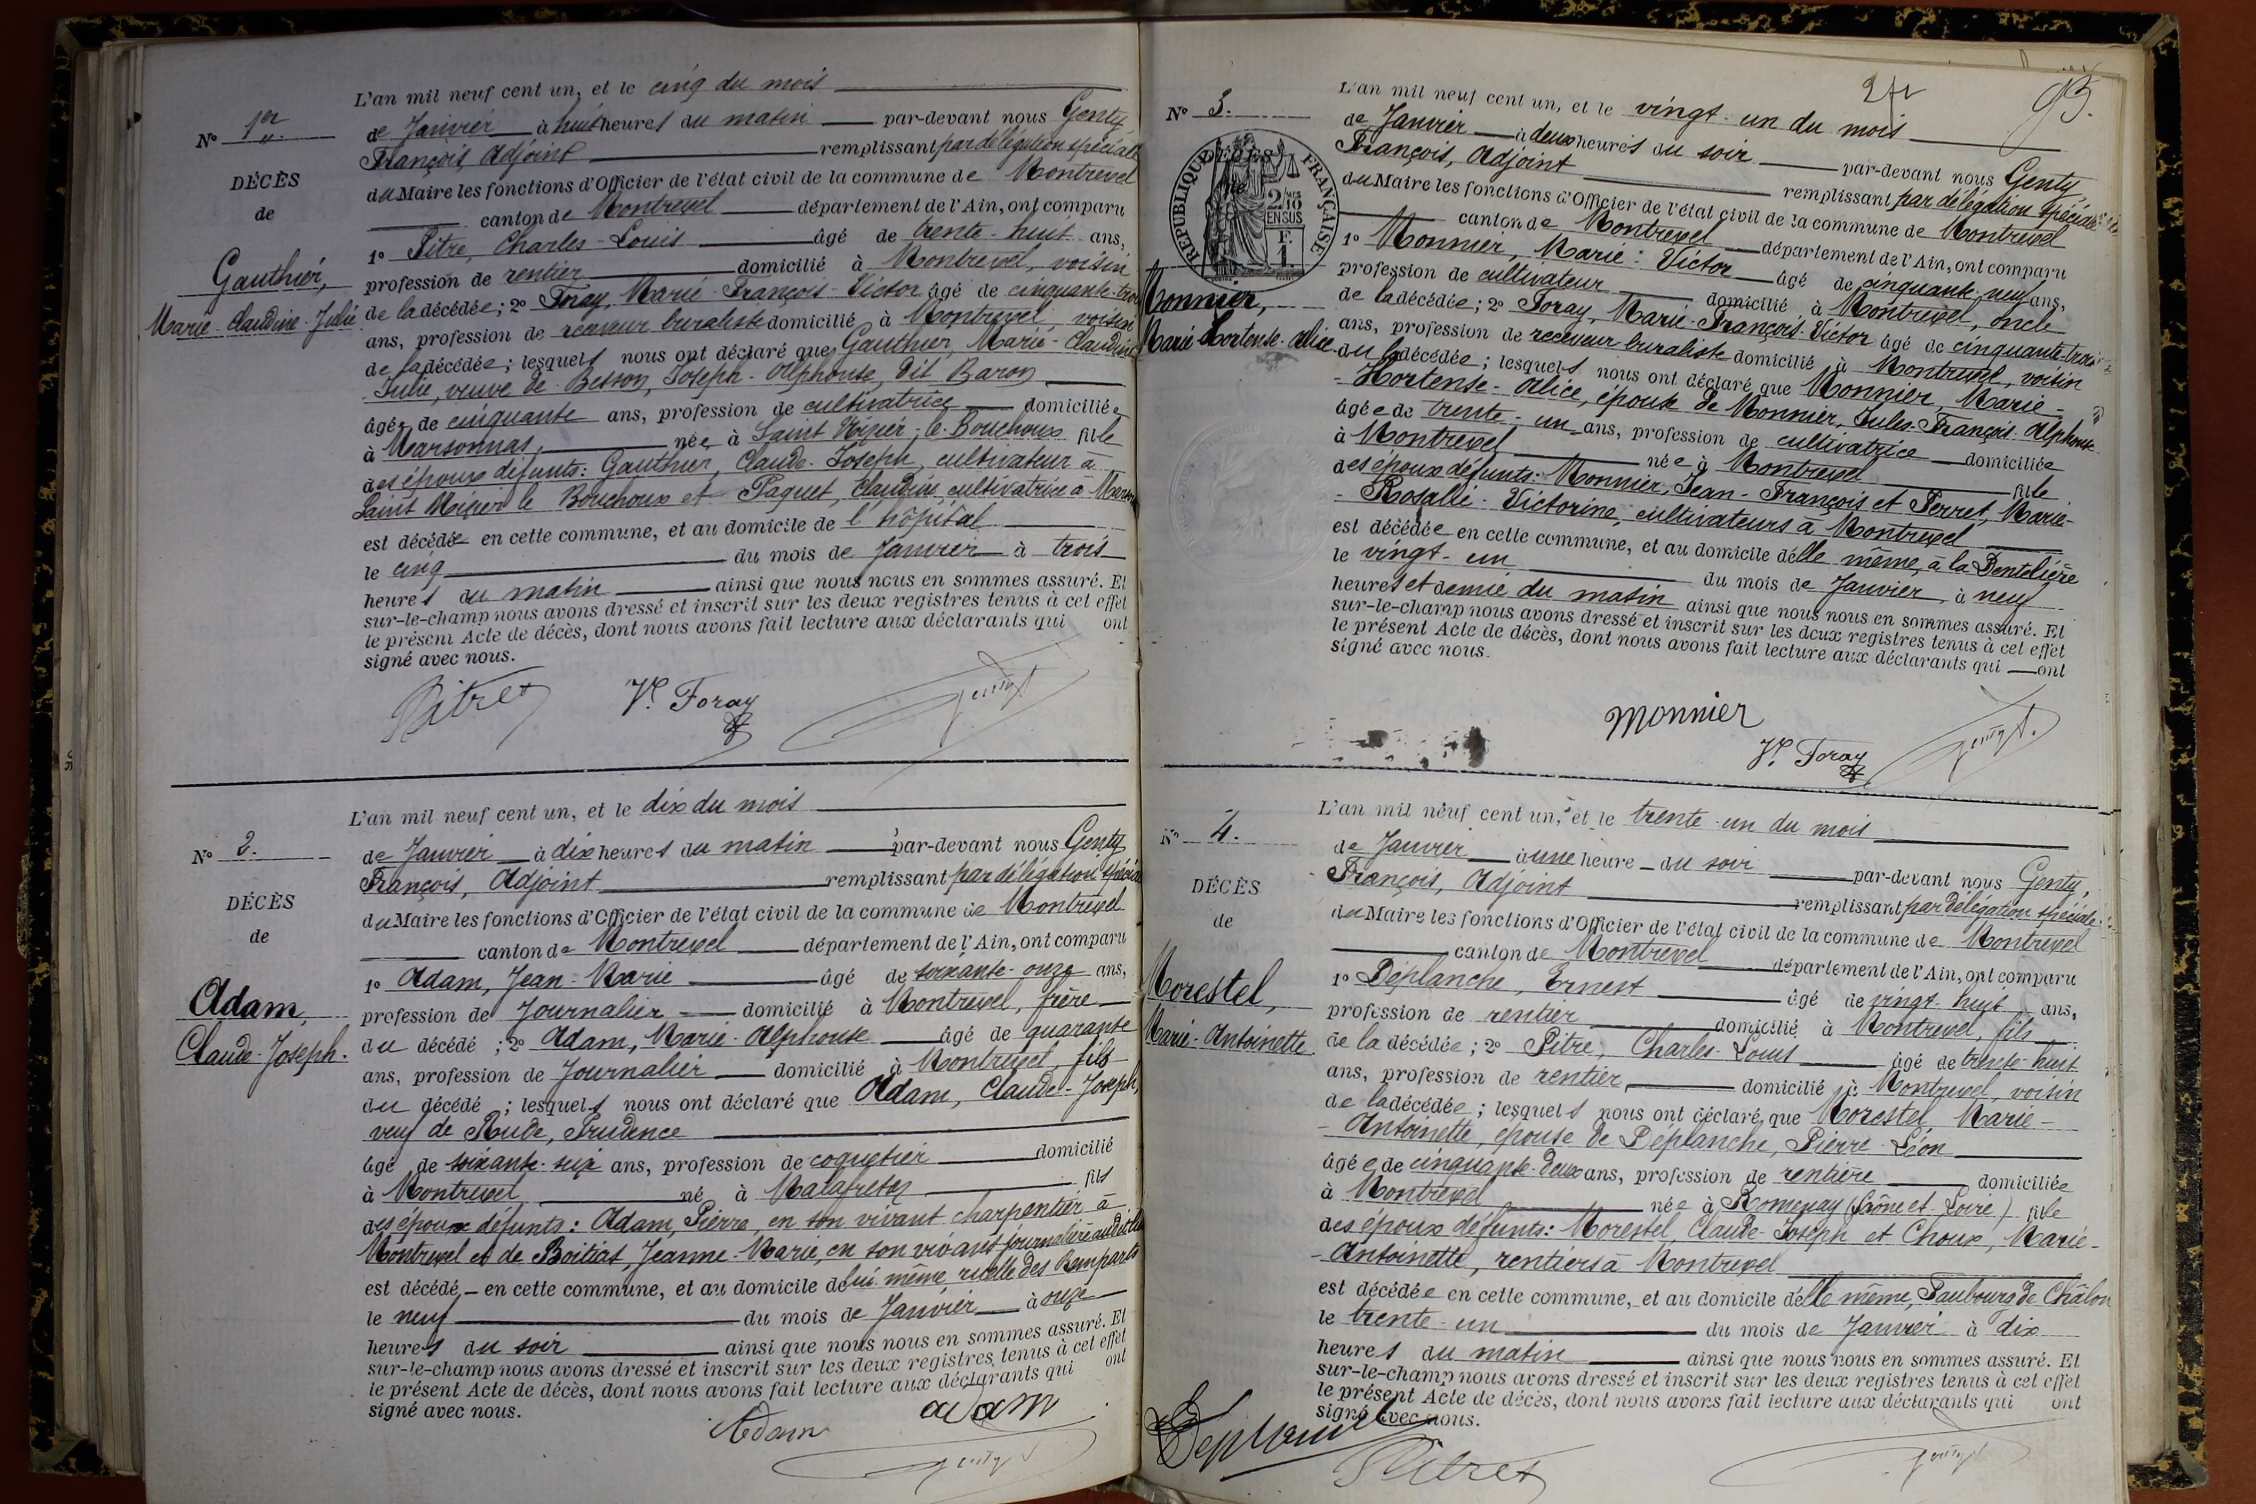 L'an mil neuf cent un, et le cinq du mois
N° 1er
de Janvier à huit heures du matin par-devant nous Genty
François, Adjoint remplissant par délégation spéciale
DÉCÈS
du Maire les fonctions d'Officier de l'état civil de la commune de Montrevel
de
canton de Montrevel département de l'Ain, ont comparu
1° Pitre, Charles-Louis âgé de trente-huit ans,
Gauthier,
profession de rentier domicilié à Montrevel, voisin
Marie-Claudine-Julie
de la décédée; 2° Foray, Marie-François-Victor âgé de cinquante-trois
ans, profession de receveur buraliste domicilié à Montrevel, voisin
de la décédée; lesquels nous ont déclaré que Gauthier, Marie-Claudine
Julie, veuve de Besson, Joseph-Alphonse, dit Baron
âgée de cinquante ans, profession de cultivatrice domiciliée
à Marsonnas, née à Saint Nizier-le-Bouchoux fille
des époux défunts: Gauthier, Claude-Joseph, cultivateur à
Saint Nizier le Bouchoux et Paquet, Claudine, cultivatrice à
est décédée en cette commune, et au domicile de l'hôpital
le cinq du mois de Janvier à trois
heures du matin ainsi que nous nous en sommes assuré. Et
sur-le-champ nous avons dressé et inscrit sur les deux registres tenus à cet effet
le présent Acte de décès, dont nous avons fait lecture aux déclarants qui ont
signé avec nous.
Pitret
Vr. Foray
Genty
L'an mil neuf cent un, et le dix du mois
N° 2.
de Janvier à dix heures du matin par-devant nous Genty
François, Adjoint remplissant par délégation spéciale
DÉCÈS
du Maire les fonctions d'Officier de l'état civil de la commune de Montrevel
de
canton de Montrevel département de l'Ain, ont comparu
1° Adam, Jean-Marie âgé de soixante-onze ans,
Adam,
profession de Journalier domicilié à Montrevel, frère
Claude-Joseph.
du décédé; 2° Adam, Marie-Alphonse âgé de quarante
ans, profession de Journalier domicilié à Montrevel, fils
du décédé; lesquels nous ont déclaré que Adam, Claude-Joseph,
veuf de Rude, Prudence
âgé de soixante-seize ans, profession de coquetier domicilié
à Montrevel né à Malafretaz fils
des époux défunts: Adam, Pierre, en son vivant charpentier à
Montrevel et de Boitias, Jeanne-Marie, en son vivant journalière audit lieu
est décédé en cette commune, et au domicile de lui-même, ruelle des Remparts
le neuf du mois de Janvier à onze
heures du soir ainsi que nous nous en sommes assuré. Et
sur-le-champ nous avons dressé et inscrit sur les deux registres tenus à cet effet
le présent Acte de décès, dont nous avons fait lecture aux déclarants qui ont
signé avec nous.
Adam
adam
Genty
93.
L'an mil neuf cent un, et le vingt-un du mois
N° 3.
de Janvier à deux heures du soir par-devant nous Genty
François, Adjoint remplissant par délégation spéciale
DÉCÈS
RÉPUBLIQUE FRANÇAISE
2/10 EN SUS
F. 1.
du Maire les fonctions d'Officier de l'état civil de la commune de Montrevel
canton de Montrevel département de l'Ain, ont comparu
1° Monnier, Marie-Victor âgé de cinquante-neuf ans,
Monnier,
profession de cultivateur domicilié à Montrevel, oncle
Marie-Hortense-Alice
de la décédée; 2° Foray, Marie-François-Victor âgé de cinquante-trois
ans, profession de receveur buraliste domicilié à Montrevel, voisin
de la décédée; lesquels nous ont déclaré que Monnier, Marie-
-Hortense-Alice, épouse de Monnier, Jules-François-Alphonse
âgée de trente-un ans, profession de cultivatrice domiciliée
à Montrevel née à Montrevel fille
des époux défunts: Monnier, Jean-François et Perret, Marie-
-Rosalie-Victorine, cultivateurs à Montrevel
est décédée en cette commune, et au domicile d'elle même, à la Dentelière
le vingt-un du mois de Janvier à neuf
heures et demie du matin ainsi que nous nous en sommes assuré. Et
sur-le-champ nous avons dressé et inscrit sur les deux registres tenus à cet effet
le présent Acte de décès, dont nous avons fait lecture aux déclarants qui ont
signé avec nous.
Monnier
Vr. Foray
Genty
L'an mil neuf cent un, et le trente-un du mois
N° 4.
de Janvier à une heure du soir par-devant nous Genty,
François, Adjoint remplissant par délégation spéciale
DÉCÈS
du Maire les fonctions d'Officier de l'état civil de la commune de Montrevel
de
canton de Montrevel département de l'Ain, ont comparu
1° Déplanche, Ernest âgé de vingt-huit ans,
Morestel,
profession de rentier domicilié à Montrevel, fils
Marie-Antoinette
de la décédée; 2° Pitre, Charles-Louis âgé de trente-huit
ans, profession de rentier, domicilié à Montrevel, voisin
de la décédée; lesquels nous ont déclaré que Morestel, Marie-
-Antoinette, épouse de Déplanche, Pierre-Léon
âgée de cinquante-deux ans, profession de rentière domiciliée
à Montrevel née à Romenay (Saône et Loire) fille
des époux défunts: Morestel, Claude-Joseph et Choux, Marie-
-Antoinette, rentiers à Montrevel
est décédée en cette commune, et au domicile d'elle même, Faubourg de Châlon
le trente-un du mois de Janvier à dix
heures du matin ainsi que nous nous en sommes assuré. Et
sur-le-champ nous avons dressé et inscrit sur les deux registres tenus à cet effet
le présent Acte de décès, dont nous avons fait lecture aux déclarants qui ont
signé avec nous.
Déplanche
Pitret
Genty